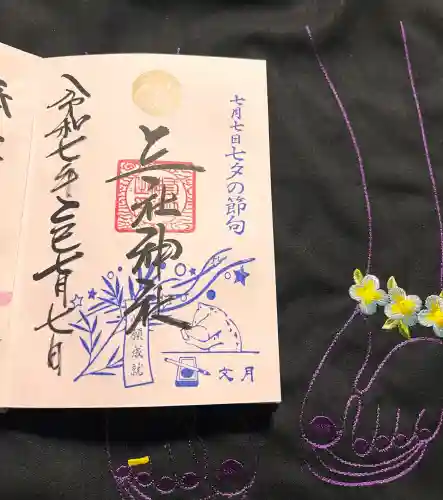 七月七日七夕の節句
上社神社
願成就
文月
令和七年乙巳七月七日